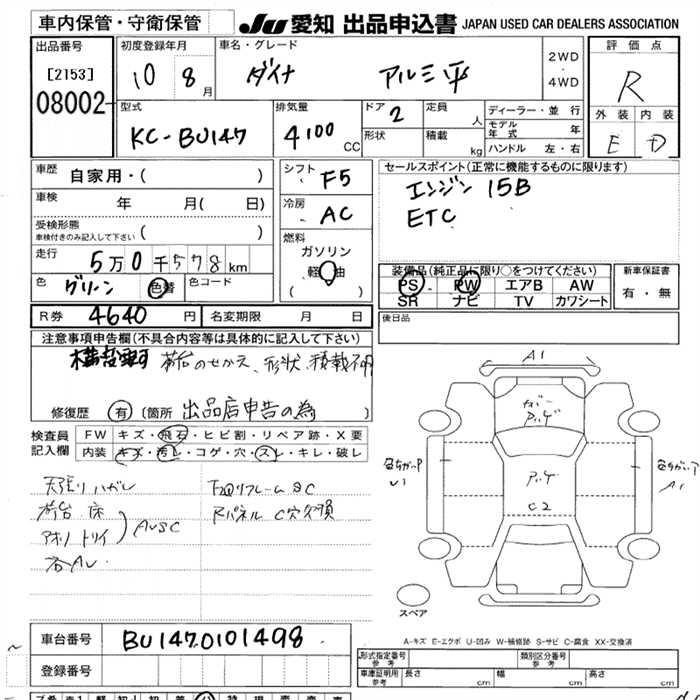 車内保管・守衛保管
JU 愛知 出品申込書 JAPAN USED CAR DEALERS ASSOCIATION
出品番号
[2153]
08002
初度登録年月
10 8 月
車名・グレード
ダイナ アルミ平
2WD
・
4WD
評価点
R
外装 内装
E D
型式
KC-BU147
排気量
4100 CC
ドア 2
形状
定員 人
積載 kg
ディーラー・並行
モデル年式 年
ハンドル 左・右
車歴
自家用・( )
車検
年 月( 日)
受検形態
車検付きのみ記入して下さい ( )
走行
5万0千578km
色
グリーン 色替
色コード
シフト
F5
冷房
AC
燃料
ガソリン
軽油
( )
セールスポイント(正常に機能するものに限ります)
エンジン 15B
ETC
装備品(純正品に限り○をつけてください)
PS PW エアB AW
SR ナビ TV カワシート
新車保証書
有・無
R券 4640 円
名変期限 月 日
後日品
注意事項申告欄(不具合内容等は具体的に記入して下さい)
荷台のせかえ、形状、積載不明
修復歴 有 〔箇所 出品店申告の為 〕
検査員
記入欄
FW キズ・飛石・ヒビ割・リペア跡・X要
内装 キズ・汚レ・コゲ・穴・スレ・キレ・破レ
天張りハガレ
荷台 床
下回りフレームSC
Rパネル C穴
A1
C2
A1
スペア
A-キズ E-エクボ U-凹み W-補修跡 S-サビ C-腐食 XX-交換済
車台番号
BU1470101498
登録番号
形式指定番号
参考
類別区分番号
参考
車庫証明用
参考
長さ cm 幅 cm 高さ cm